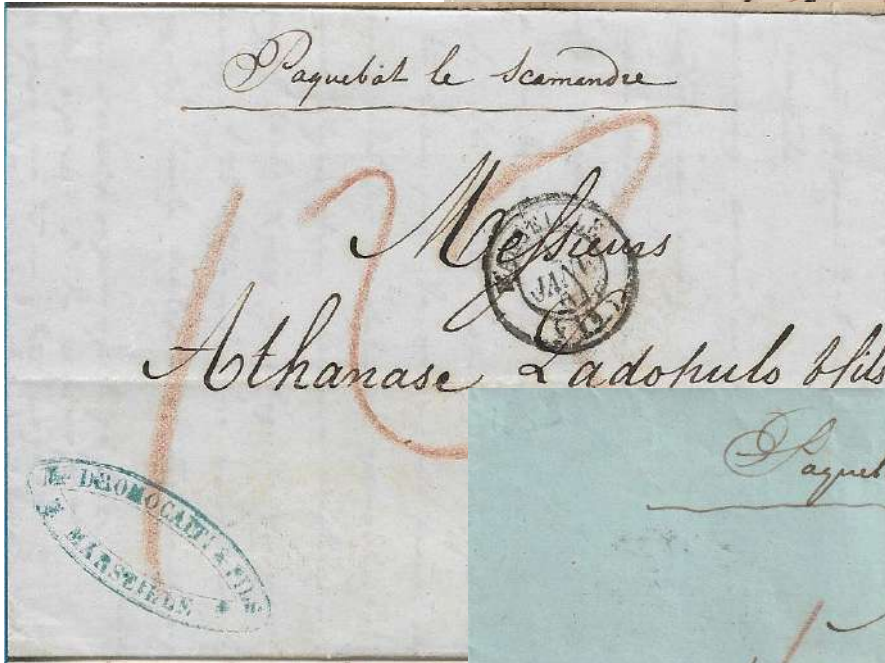 Paquebot le Scamandre
Messieurs
MARSEILLE
JANV.
Athanase Ladopulo & fils
DROMOCAITI & FILS
MARSEILLE
Paqueb